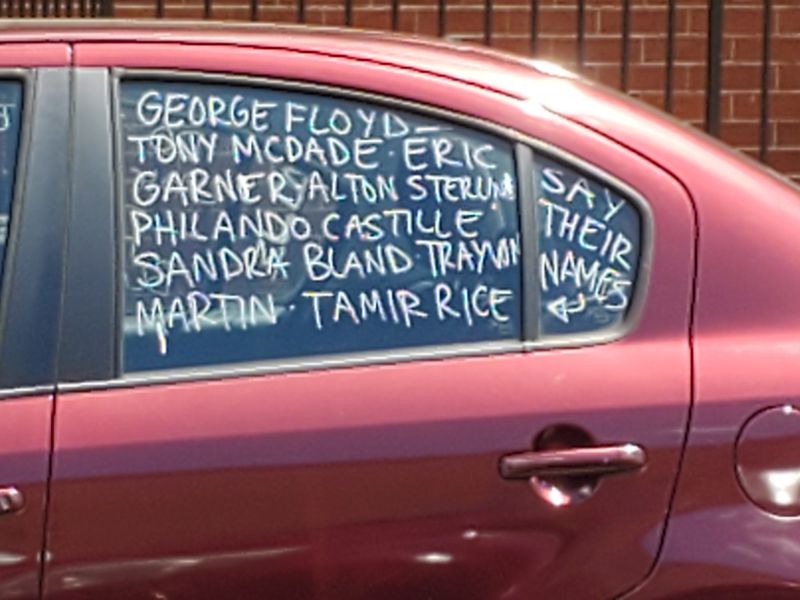 GEORGE FLOYD
TONY MCDADE · ERIC
GARNER · ALTON STERLING
PHILANDO CASTILLE
SANDRA BLAND · TRAYVON
MARTIN · TAMIR RICE
SAY
THEIR
NAMES